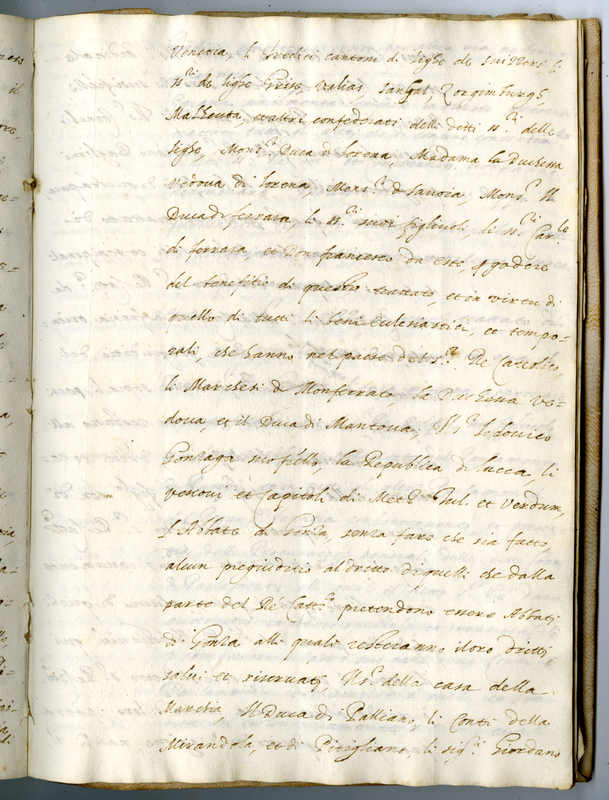 Venetia, li tredici cantoni di lighe de suizzeri li
s.ri de lighe Grise, Valias, Sangal,
Mulhouta, et altri confederati delli detti s.ri delle
lighe, Mons.r Duca di Lorena Madama la Duchessa
vedova di Lorena, Mons.r di Savoia, Mons.r Il
Duca di ferrara, li s.ri suoi figliuoli li s.ri Car.le
di ferrara, et Don francesco da este p godere
del benefitio di questo trattato et in virtu di
quello di tutti li beni eclesiastici, et tempo-
rali, che hanno nel paese del s.r Re Catolico,
li Marchesi di Monferrato la Duchessa ve=
dova, et il Duca di Mantova, Il s.r Lodovico
Gonzaga suo fello, la Republica di lucca, li
vescovi et Capitoli di Metz Tul. et Verdum,
l'Abbate di Gonza, senza fare che sia fatto
alcun pregiuditio al dritto di quelli che dalla
parte del Rè Catt.co pretendono essere Abbati
di Gonza alli quali resteranno i loro dritti
salvi et riservati, Il s.r della casa della
Marchia, Il Duca di Palliano, li Conti della
Mirandola, et di Pitigliano, li sig.ri Giordano